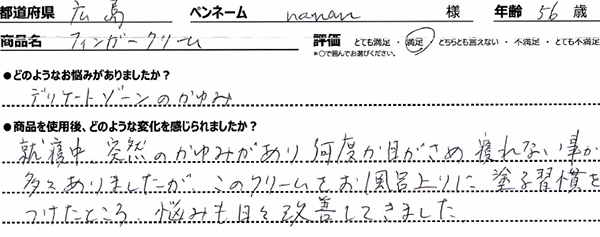 都道府県 広島 ペンネーム nanan 様 年齢 56 歳
商品名 フィンガークリーム 評価 とても満足・満足・どちらとも言えない・不満足・とても不満足
*○で囲んでお選びください。
●どのようなお悩みがありましたか?
デリケートゾーンのかゆみ
●商品を使用後、どのような変化を感じられましたか?
就寝中、突然のかゆみがあり何度か目がさめ寝れない事が
多々ありましたが、このクリームをお風呂上りに塗る習慣を
つけたところ、悩みも日々改善してきました